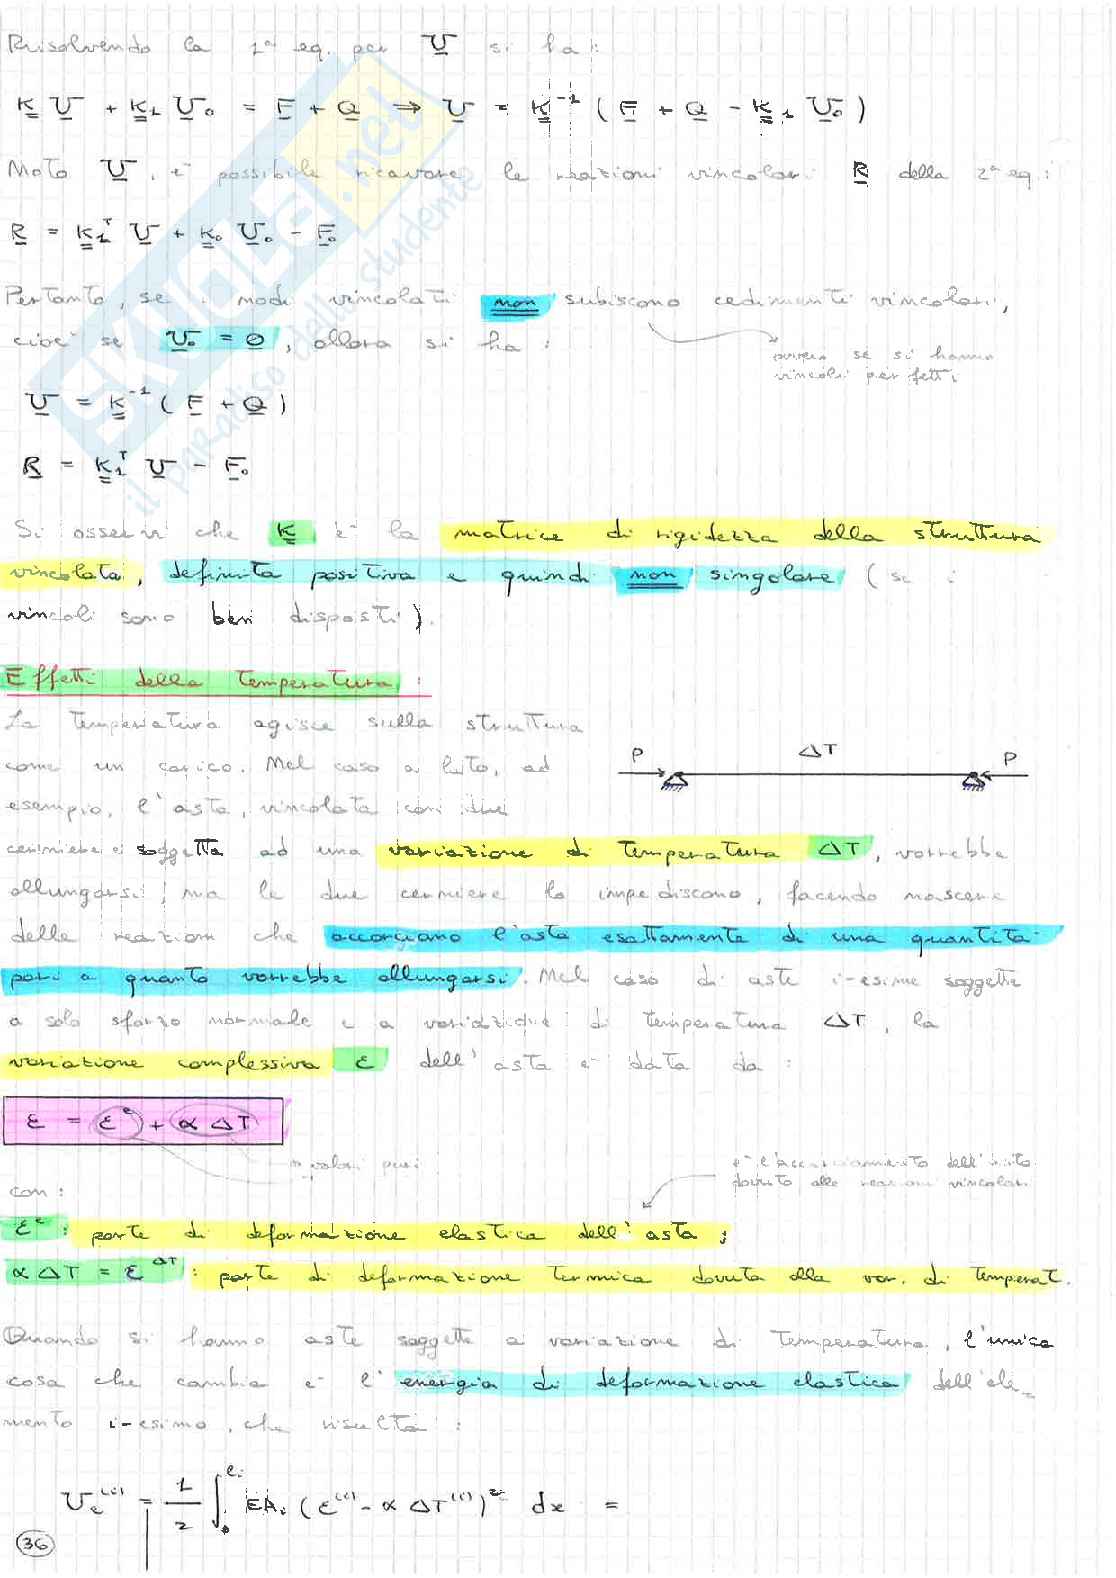 Risolvendo la 1ª eq. per U si ha:
K U + K₁ U₀ = F + Q ⇒ U = K⁻¹ ( F + Q - K₁ U₀ )
Noto U, è possibile ricavare le reazioni vincolari R della 2ª eq.:
R = K₁ᵀ U + K₀ U₀ - F₀
Pertanto, se i nodi vincolati non subiscono cedimenti vincolari,
cioè se U₀ = 0, allora si ha:
ovvero se si hanno
vincoli perfetti
U = K⁻¹ ( F + Q )
R = K₁ᵀ U - F₀
Si osservi che K è la matrice di rigidezza della struttura
vincolata, definita positiva e quindi non singolare ( se i
vincoli sono ben disposti ).
Effetti della temperatura:
La temperatura agisce sulla struttura
come un carico. Nel caso a lato, ad
esempio, l'asta, vincolata con due
P ΔT P
cerniere e soggetta ad una variazione di temperatura ΔT, vorrebbe
allungarsi, ma le due cerniere lo impediscono, facendo nascere
delle reazioni che accorciano l'asta esattamente di una quantità
pari a quanto vorrebbe allungarsi. Nel caso di aste i-esime soggette
a solo sforzo normale e a variazione di temperatura ΔT, la
variazione complessiva ε dell'asta è data da:
ε = εᵉ + α ΔT
valori
è l'accorciamento dell'asta
dovuto alle reazioni vincolari
con:
εᵉ: parte di deformazione elastica dell'asta;
α ΔT = ε^ΔT: parte di deformazione termica dovuta alla var. di temperat.
Quando si hanno aste soggette a variazione di temperatura, l'unica
cosa che cambia è l'energia di deformazione elastica dell'ele-
mento i-esimo, che risulta:
Uₑ⁽ⁱ⁾ = 1/2 ∫₀^ℓᵢ EAᵢ ( ε⁽ⁱ⁾ - α ΔT⁽ⁱ⁾ )² dx =
36
SKUOLA.net
il paradiso dello studente